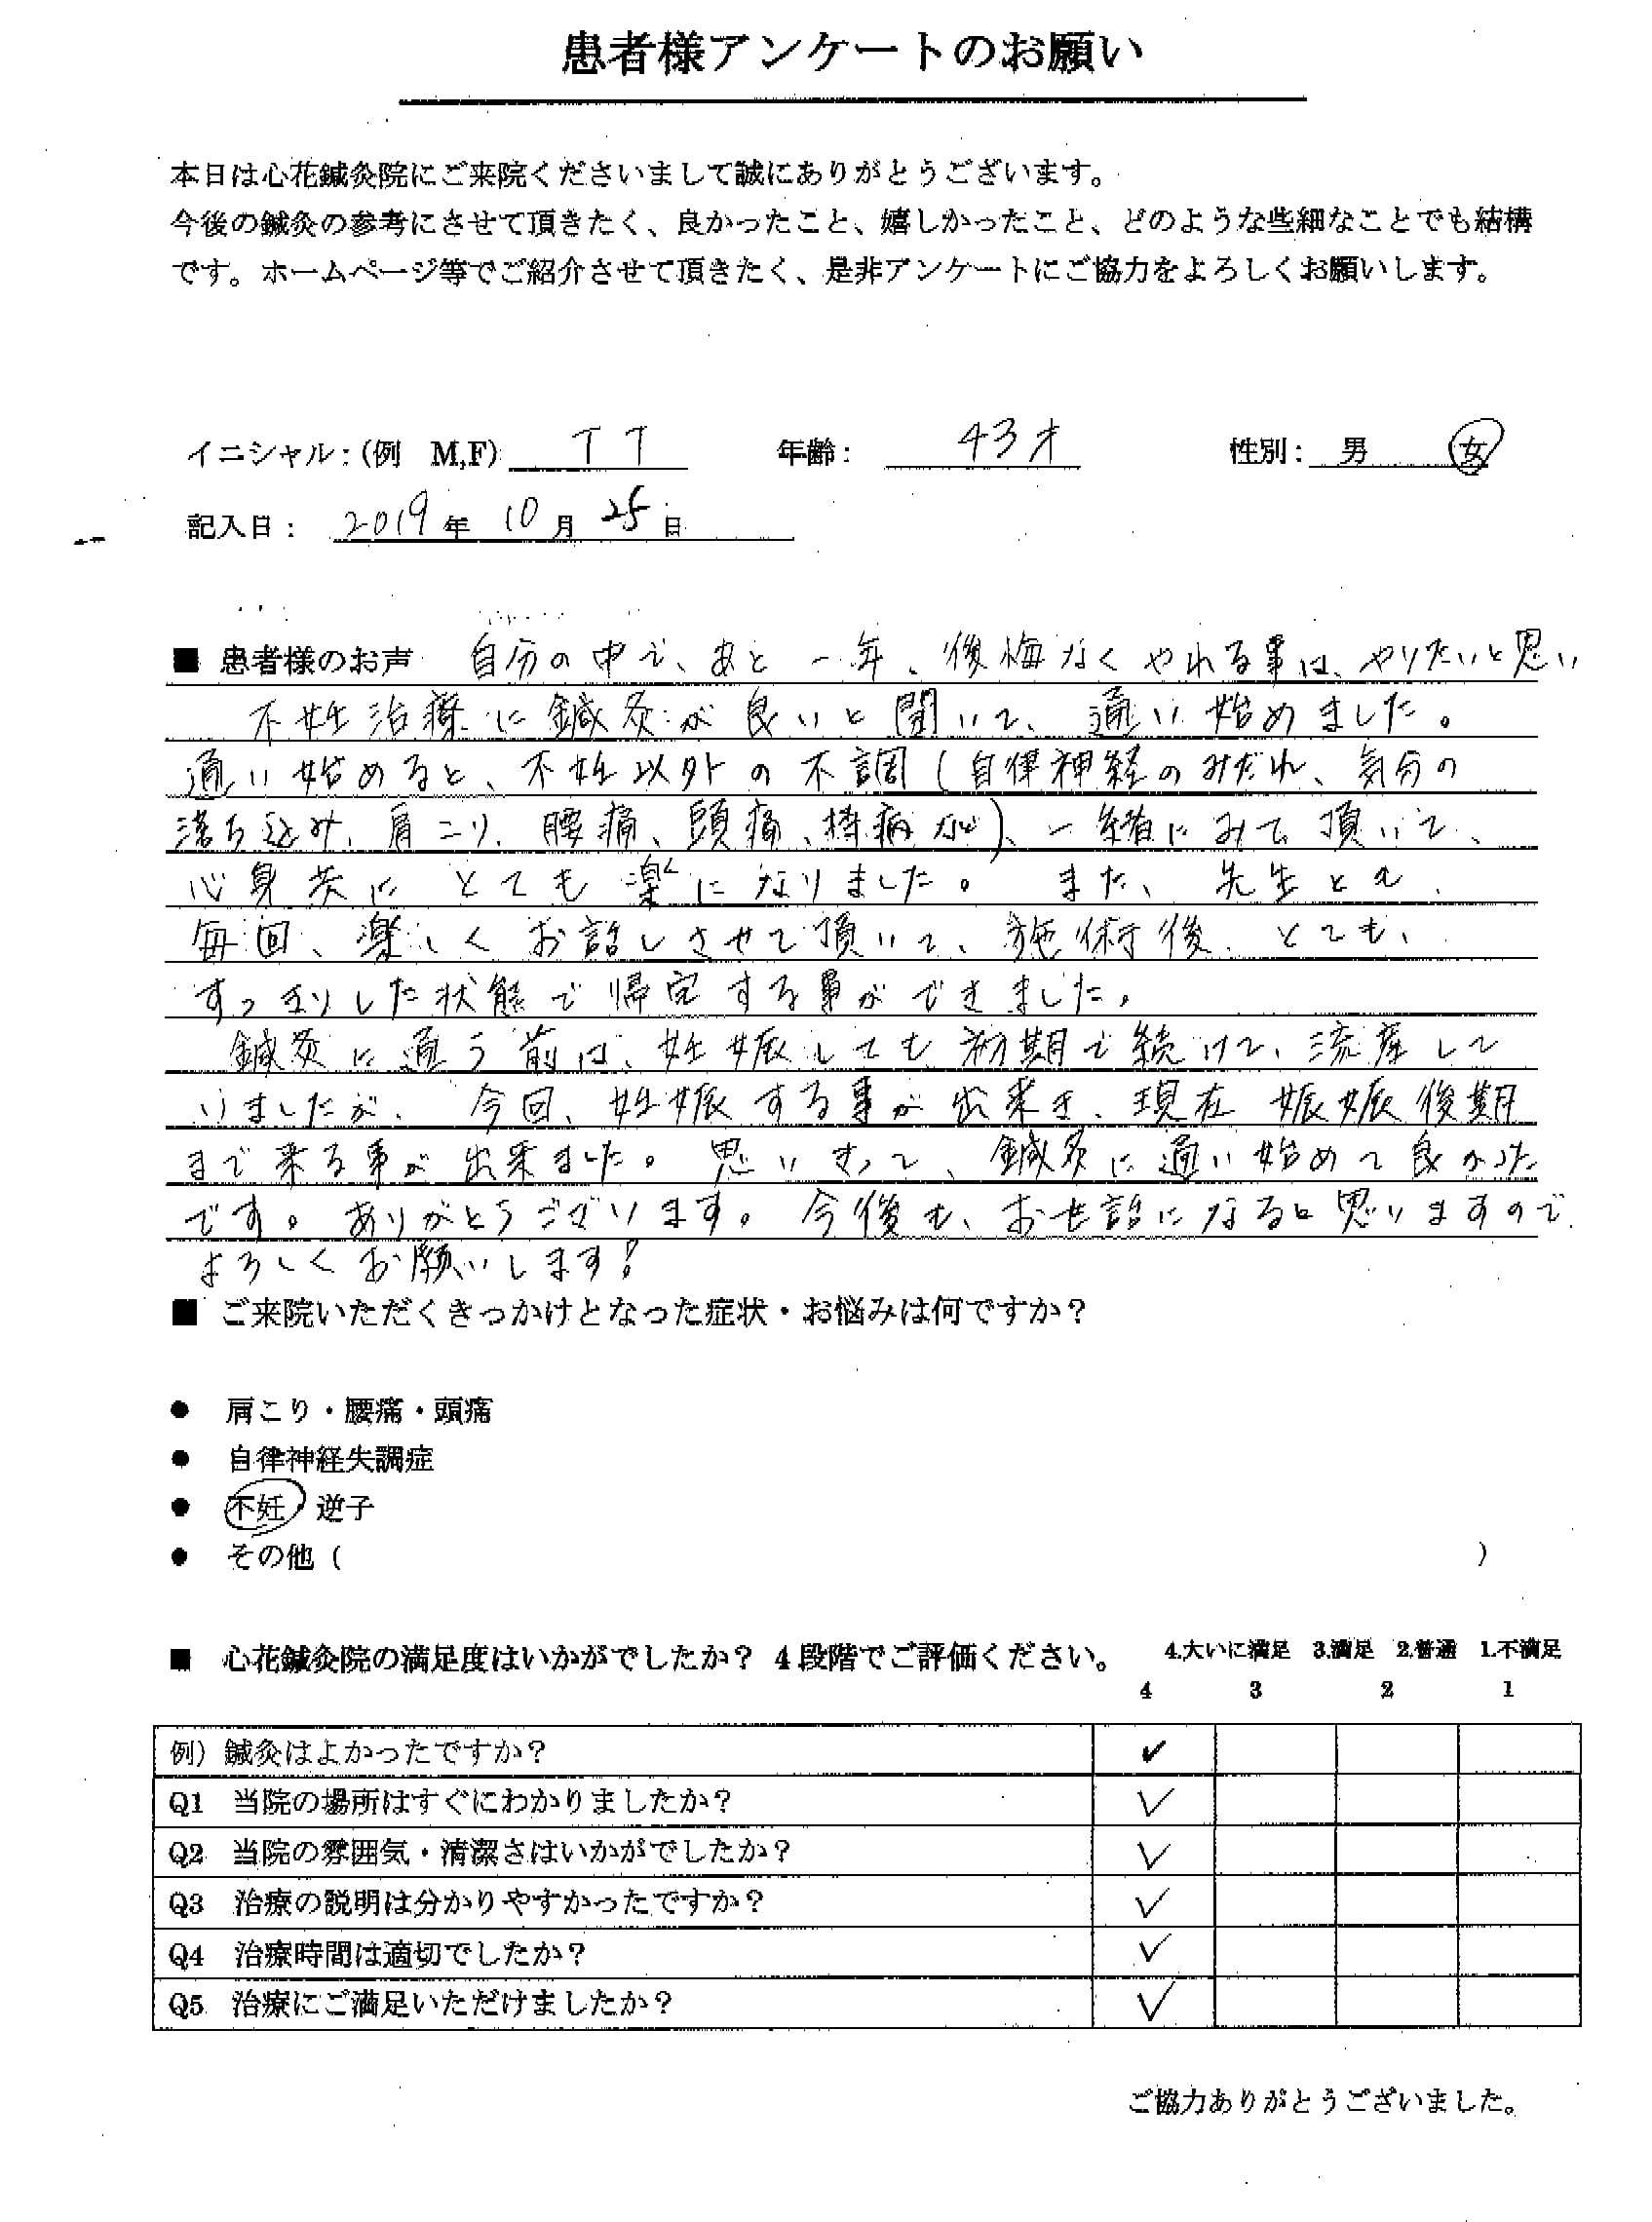 患者様アンケートのお願い
本日は心花鍼灸院にご来院くださいまして誠にありがとうございます。
今後の鍼灸の参考にさせて頂きたく、良かったこと、嬉しかったこと、どのような些細なことでも結構
です。ホームページ等でご紹介させて頂きたく、是非アンケートにご協力をよろしくお願いします。
イニシャル:(例 M,F) TT 年齢: 43才 性別: 男 女
記入日: 2019年 10月 25日
■ 患者様のお声 自分の中で、あと一年、後悔なくやれる事は、やりたいと思い
不妊治療に鍼灸が良いと聞いて、通い始めました。
通い始めると、不妊以外の不調(自律神経のみだれ、気分の
落ち込み、肩こり、腰痛、頭痛、持病など)、一緒にみて頂いて、
心身共に とても楽になりました。 また、先生とも、
毎回、楽しくお話しさせて頂いて、施術後、とても、
すっきりした状態で帰宅する事ができました。
鍼灸に通う前は、妊娠しても初期で続けて、流産して
いましたが、今回、妊娠する事が出来き、現在 娠娠後期
まで来る事が出来ました。思いきって、鍼灸に通い始めて良かった
です。ありがとうございます。今後も、お世話になると思いますので
よろしくお願いします!
■ ご来院いただくきっかけとなった症状・お悩みは何ですか?
● 肩こり・腰痛・頭痛
● 自律神経失調症
● 不妊・逆子
● その他 ( )
■ 心花鍼灸院の満足度はいかがでしたか? 4段階でご評価ください。 4.大いに満足 3.満足 2.普通 1.不満足
4 3 2 1
例) 鍼灸はよかったですか? ✔
Q1 当院の場所はすぐにわかりましたか? ✓
Q2 当院の雰囲気・清潔さはいかがでしたか? ✓
Q3 治療の説明は分かりやすかったですか? ✓
Q4 治療時間は適切でしたか? ✓
Q5 治療にご満足いただけましたか? ✓
ご協力ありがとうございました。